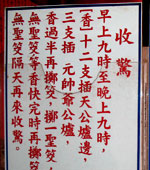 收驚
早上九時至晚上九時,
[香]十二支插天公爐邊,
三支插 元帥爺公爐,
香過半再擲筊,擲一聖筊,
無聖筊等香快完時再擲筊
無聖筊隔天再來收驚。